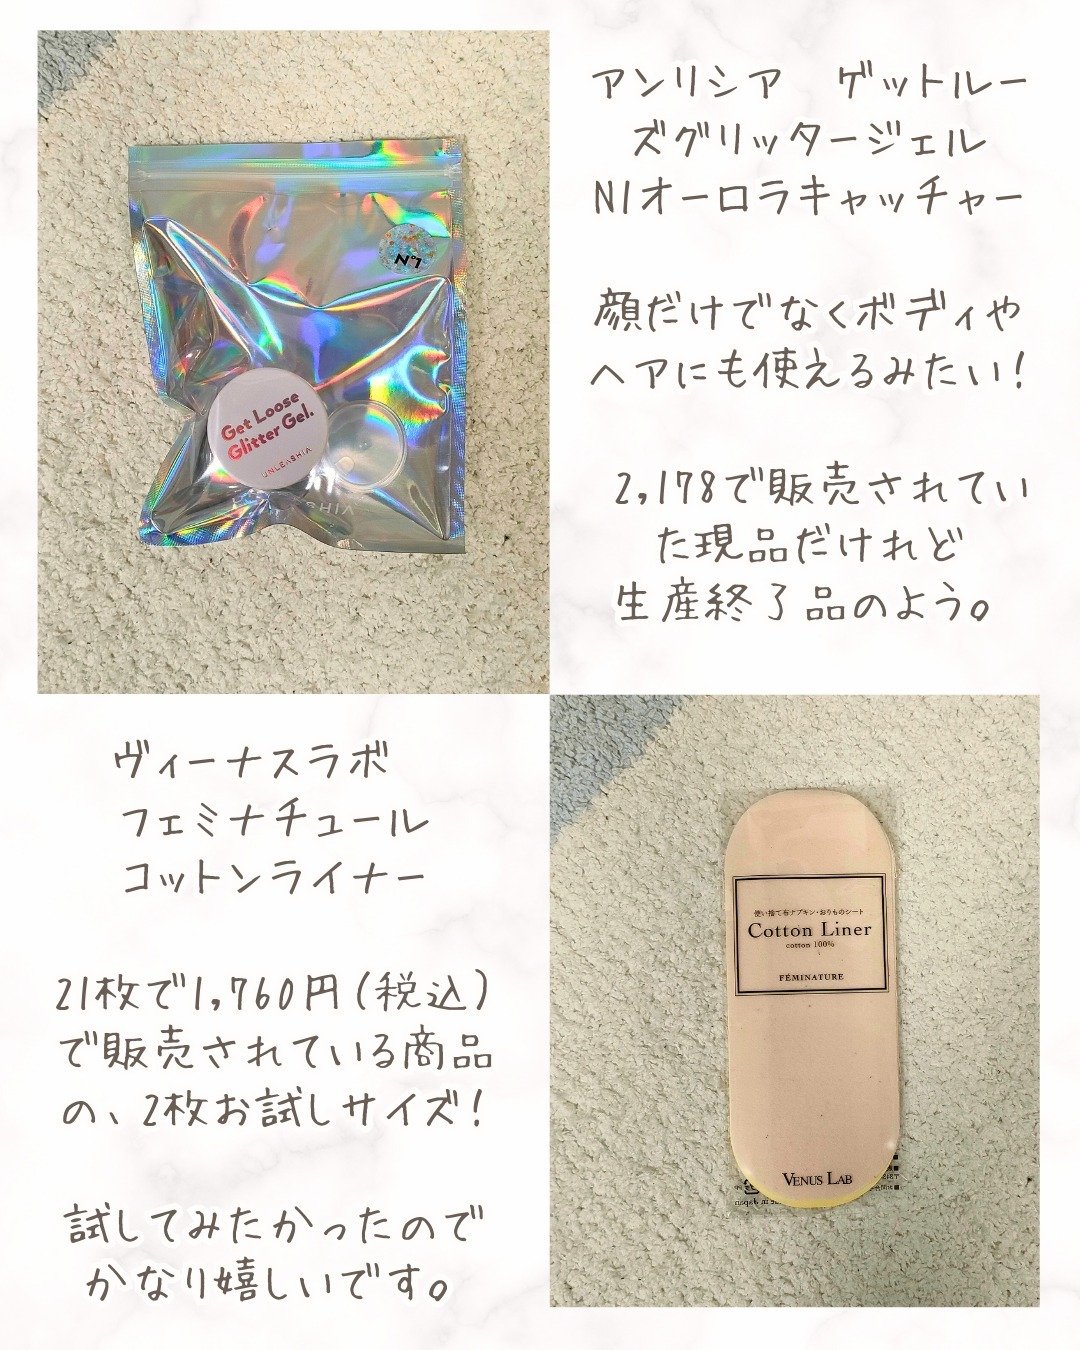 アンリシア　ゲットルー
ズグリッタージェル
N1オーロラキャッチャー
顔だけでなくボディや
ヘアにも使えるみたい！
2,178で販売されてい
た現品だけれど
生産終了品のよう。
N°1
Get Loose
Glitter Gel.
UNLEASHIA
ヴィーナスラボ
フェミナチュール
コットンライナー
21枚で1,760円（税込）
で販売されている商品
の、2枚お試しサイズ！
試してみたかったので
かなり嬉しいです。
使い捨て布ナプキン・おりものシート
Cotton Liner
cotton 100%
FÉMINATURE
VENUS LAB